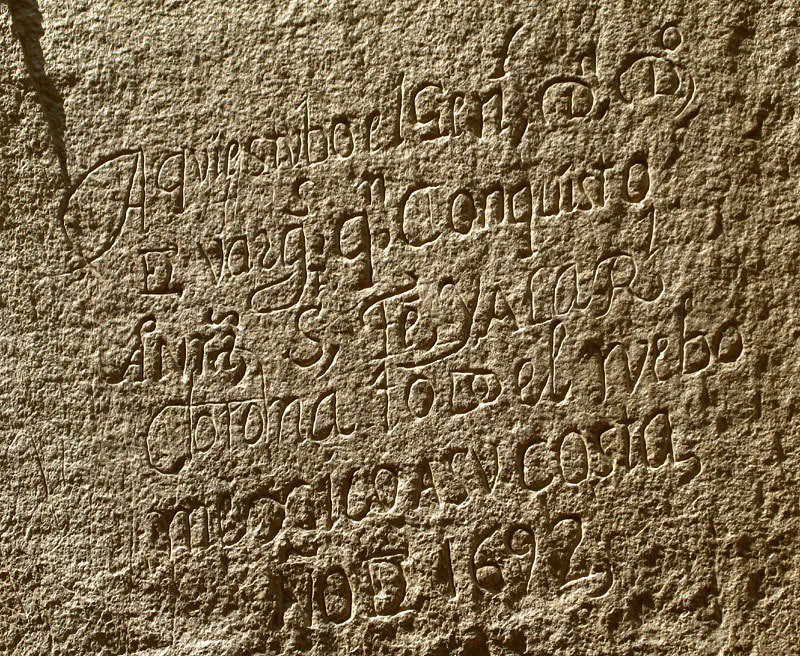 Aqui estvbo el Genl, Dn Do
DE vargs, qn Conquisto
A Nтra S, Fe, y A La R,l
Corona toDo el nuebo
mexico A sv costa,
Año DE 1692